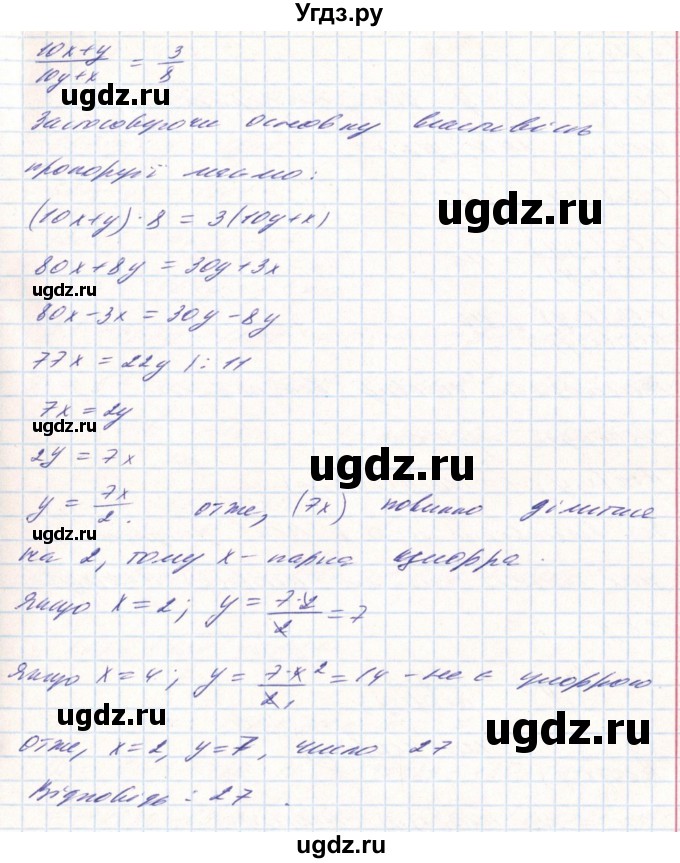 Угдз.ру
(10x+y)/(10y+x) = 3/8
ugdz.ru
Застосовуючи основну властивість
пропорції маємо:
(10x+y)·8 = 3(10y+x)
ugdz.ru
80x+8y = 30y+3x
ugdz.ru
80x-3x = 30y-8y
77x = 22y |: 11
7x = 2y
ugdz.ru
2y = 7x
ugdz.ru
y = 7x/2. отже, (7x) повинно ділитися
ugdz.ru
на 2, тому x - парна цифра.
якщо x = 2; y = 7·2/2 = 7
якщо x = 4; y = 7·4²/2₁ = 14 - не є цифрою
ugdz.ru
ugdz.ru
отже, x=2, y=7, число 27
Відповідь: 27.
ugdz.ru